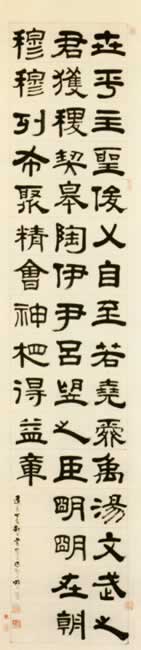 世平主聖俊乂自至若堯舜禹湯文武之
君獲稷契皋陶伊尹呂望之臣眀眀在朝
穆穆列布聚精會神相得益章